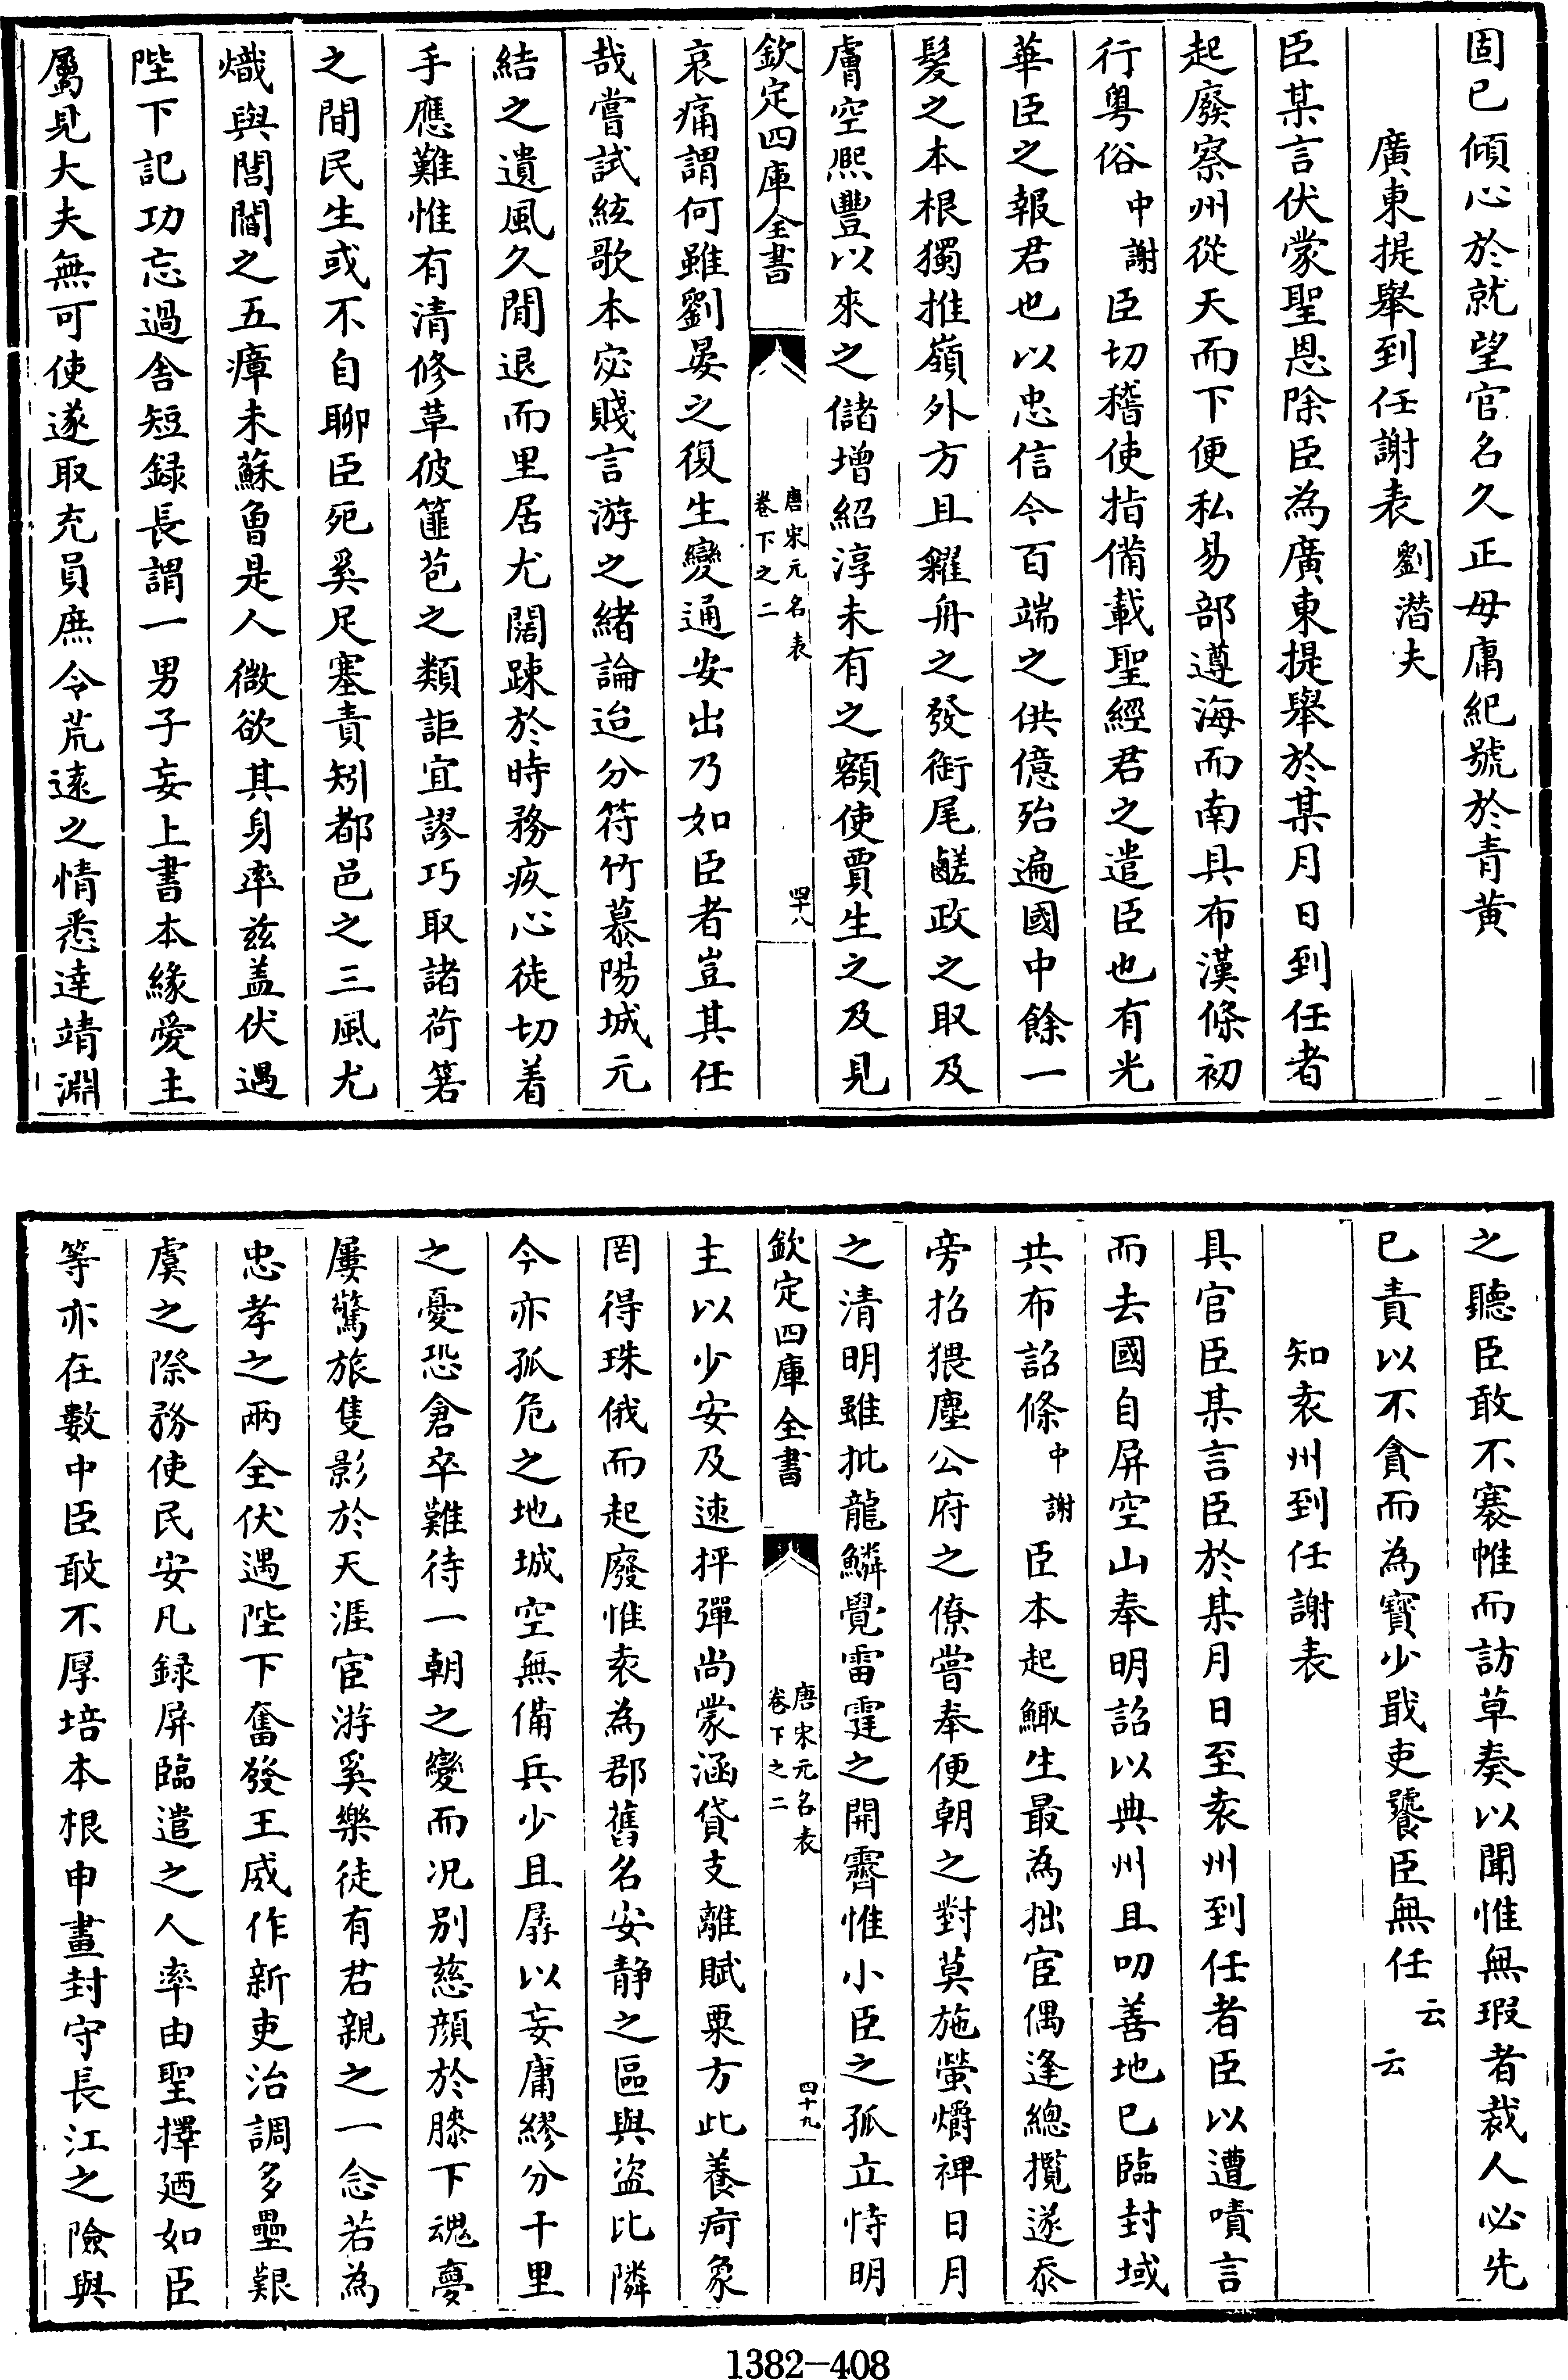 固已傾心於就望官名久正毋庸紀號於青黄
廣東提舉到任謝表 劉潛夫
臣某言伏蒙聖恩除臣為廣東提舉於某月日到任者
起廢察州從天而下便私易部遵海而南具布漢條初
行粤俗中謝臣切稽使指備載聖經君之遣臣也有光
華臣之報君也以忠信今百端之供億殆遍國中餘一
髮之本根獨推嶺外方且糴舟之發銜尾鹺政之取及
膚空熈豐以來之儲增紹淳未有之額使賈生之及見
欽定四庫全書
唐宋元名表
卷下之二
四十八
哀痛謂何雖劉晏之復生變通安出乃如臣者豈其任
哉嘗試絃歌本宓賤言游之緒論迨分符竹慕陽城元
結之遺風久閒退而里居尤闊踈於時務疚心徒切着
手應難惟有清修草彼篚苞之類詎宜謬巧取諸荷箬
之間民生或不自聊臣死奚足塞責矧都邑之三風尤
熾與閭閻之五瘴未蘇曾是人微欲其身率兹盖伏遇
陛下記功忘過舍短録長謂一男子妄上書本緣愛主
屬見大夫無可使遂取充員庶令荒遠之情悉達靖淵
之聽臣敢不褰帷而訪草奏以聞惟無瑕者裁人必先
已責以不貪而為寳少戢吏饕臣無任云云
知袁州到任謝表
具官臣某言臣於某月日至袁州到任者臣以遭嘖言
而去國自屏空山奉明詔以典州且叨善地已臨封域
共布詔條中謝臣本起鯫生最為拙宦偶逢總攬遂忝
旁招猥塵公府之僚嘗奉便朝之對莫施螢爝裨日月
之清明雖批龍鱗覺雷霆之開霽惟小臣之孤立恃明
欽定四庫全書
唐宋元名表
卷下之二
四十九
主以少安及速抨彈尚蒙涵貸支離賦粟方此養疴象
罔得珠俄而起廢惟袁為郡舊名安静之區與盗比隣
今亦孤危之地城空無備兵少且孱以妄庸繆分千里
之憂恐倉卒難待一朝之變而况别慈顔於膝下魂夢
屢驚旅隻影於天涯宦游奚樂徒有君親之一念若為
忠孝之兩全伏遇陛下奮發王威作新吏治調多壘艱
虞之際務使民安凡録屏臨遣之人率由聖擇廼如臣
等亦在數中臣敢不厚培本根申畫封守長江之險與
1382-408